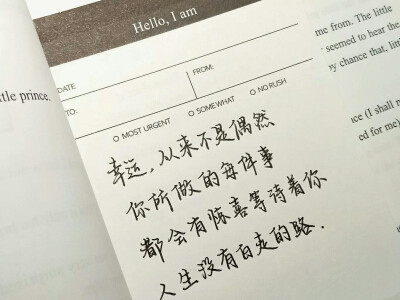 Hello, I am
DATE
FROM:
TO:
MOST URGENT
SOMEWHAT
NO RUSH
幸运，从来不是偶然
你所做的每件事
都会有惊喜等待着你
人生没有白走的路.
tle prince.
me from. The little
seemed to hear the
y chance that, littl
ice (I shall n
ed for me)